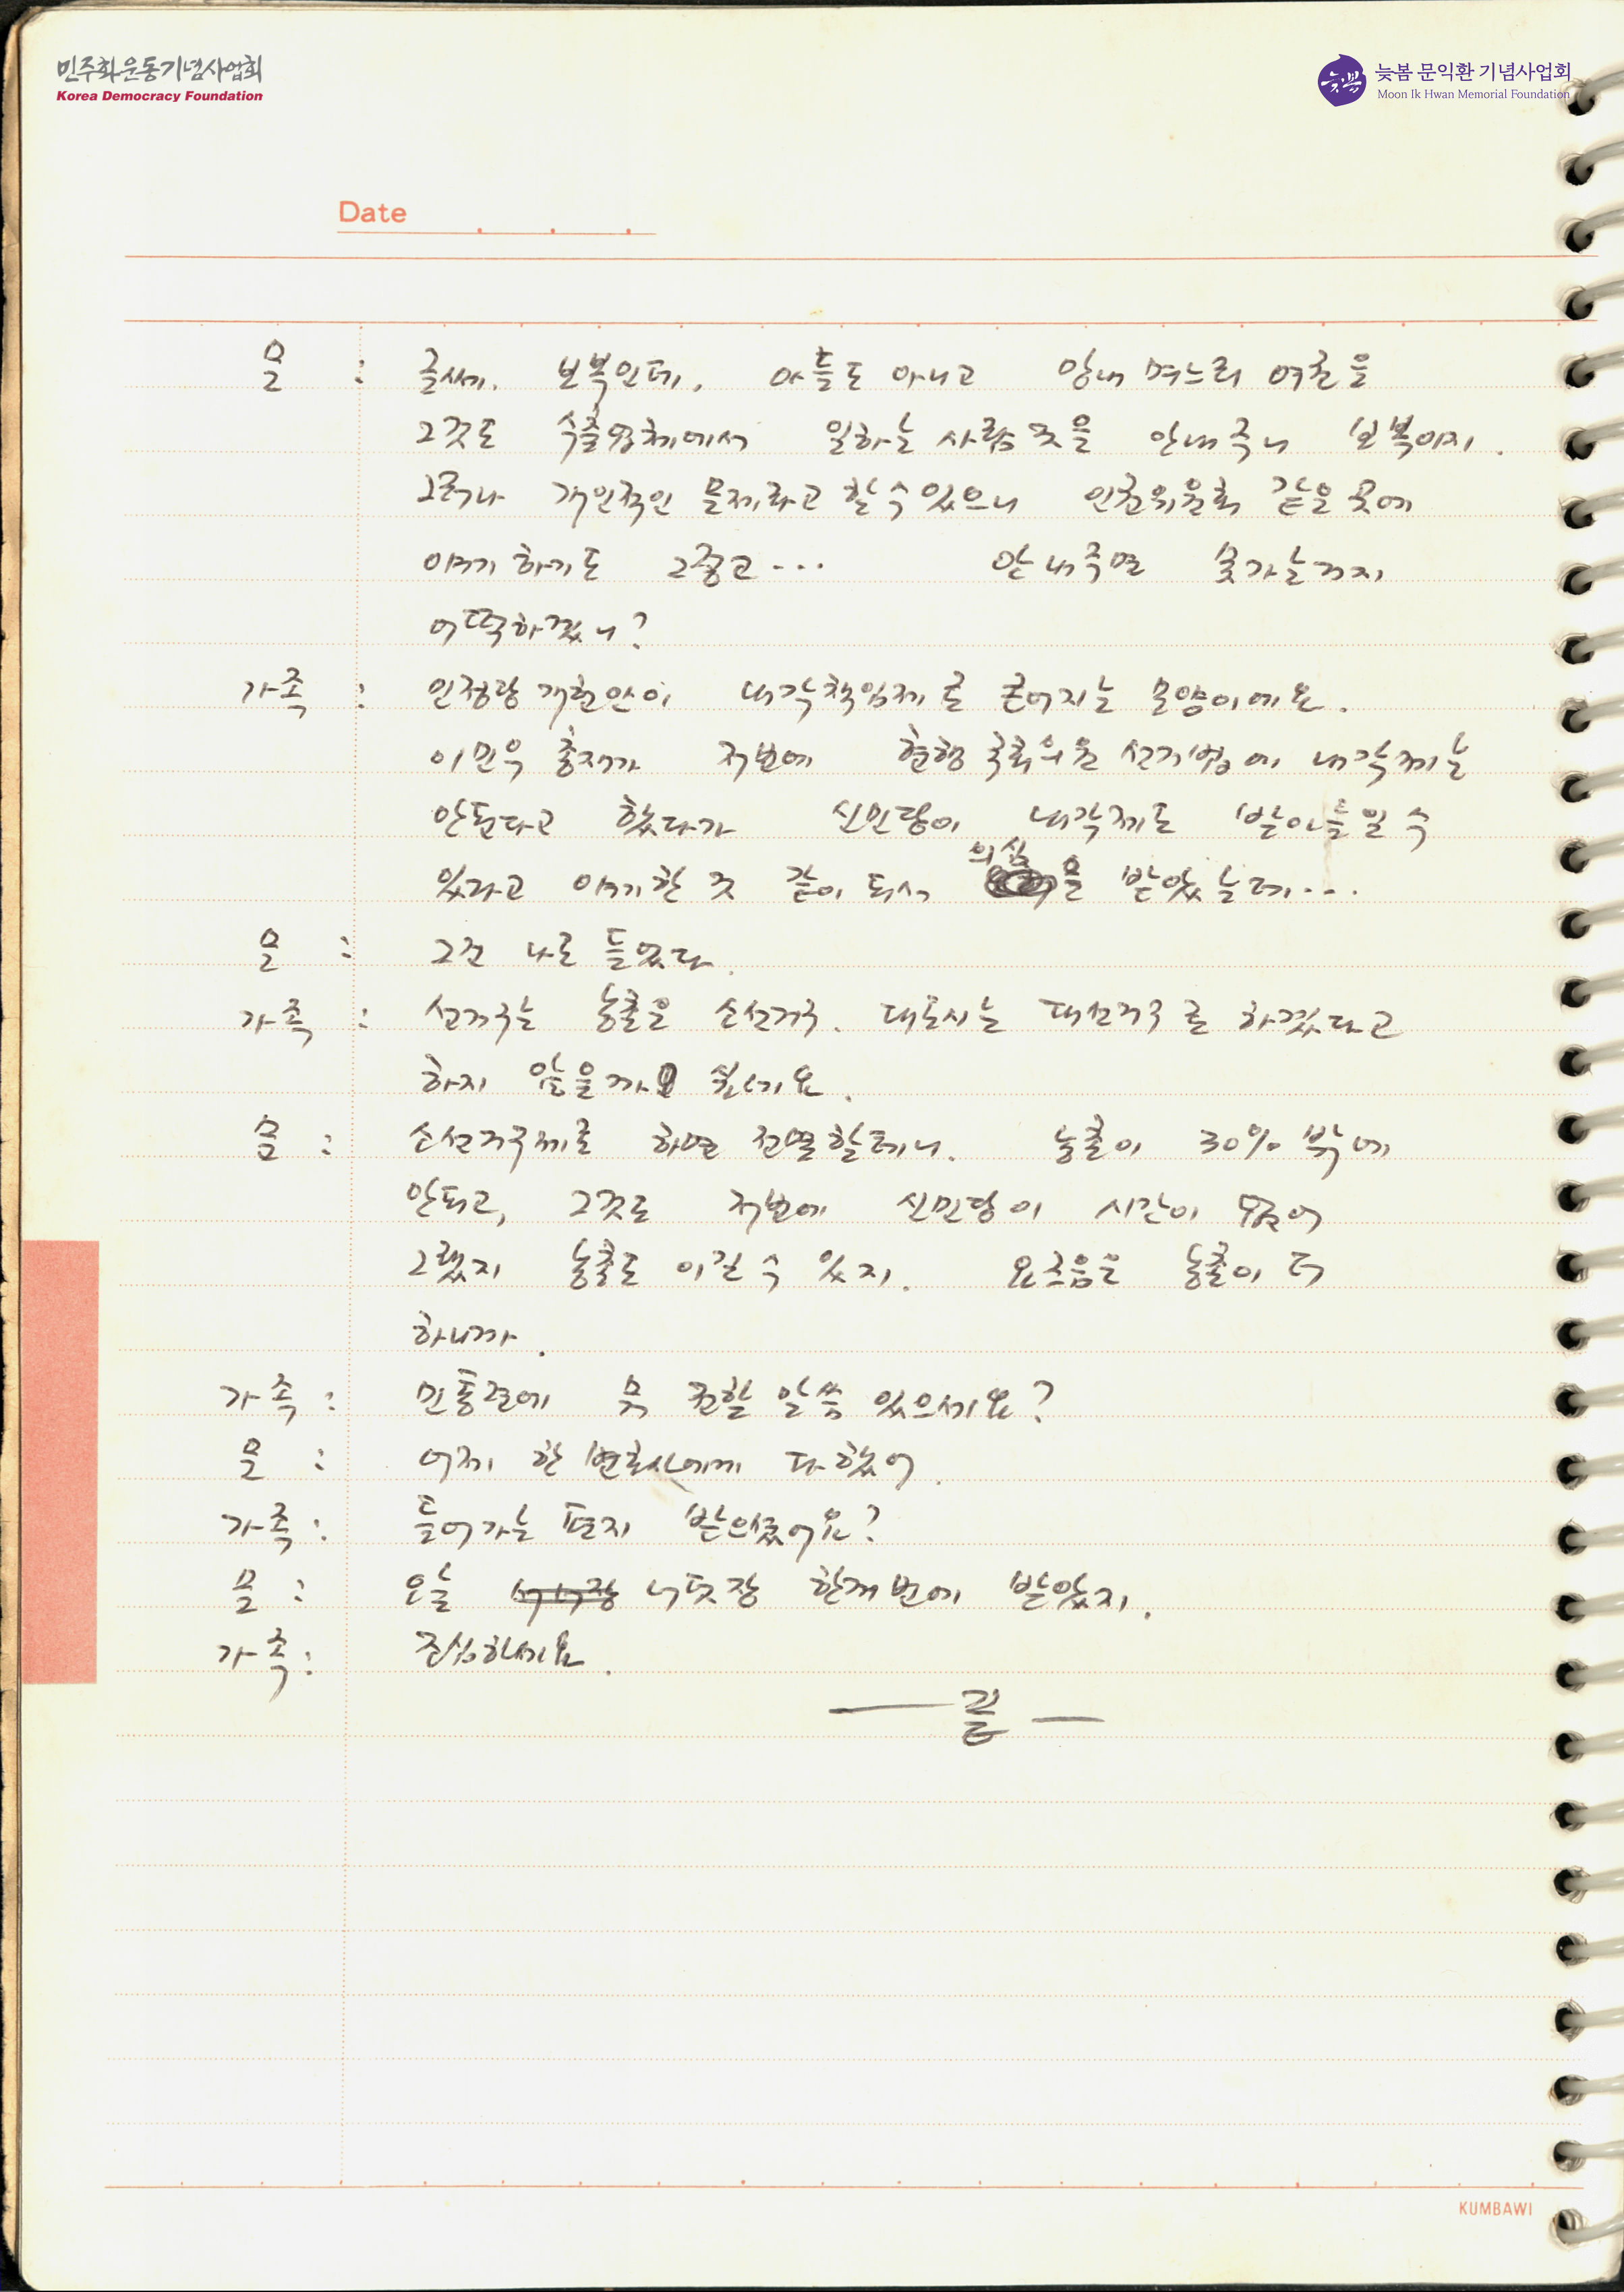 민주화운동기념사업회
Korea Democracy Foundation
늦봄 문익환 기념사업회
Moon Ik Hwan Memorial Foundation
Date
문 : 글쎄. 보복인데, 아들도 아니고 막내 며느리 여권을
그것도 수출업체에서 일하는 사람 것을 안내주니 보복이지.
그러나 개인적인 문제라고 할 수 있으니 인권위원회 같은 곳에
얘기하기도 그렇고... 안 내주면 못가는거지
어떡하겠니?
가족 : 민정당 개헌안이 내각책임제로 굳어지는 모양이에요.
이민우 총재가 저번에 현행 국회의원 선거법에 내각제는
안된다고 했다가 신민당이 내각제도 받아들일 수
있다고 얘기한 것 같이 되서 의심을 받았는데...
문 : 그건 나도 들었다.
가족 : 선거구는 농촌은 소선거구. 대도시는 대선거구로 하겠다고
하지 않을까 싶네요.
문 : 소선거구제로 하면 전멸할테니. 농촌이 30% 밖에
안되고, 그것도 저번에 신민당이 시간이 없어
그랬지 농촌도 이길 수 있지. 요즈음은 농촌이 더
하니까.
가족 : 민통련에 뭐 전할 말씀 있으세요?
문 : 어제 한 변호사에게 다 했어.
가족 : 들어가는 편지 받으셨어요?
문 : 오늘 너댓장 한꺼번에 받았지.
가족 : 조심하세요.
— 끝 —
KUMBAWI